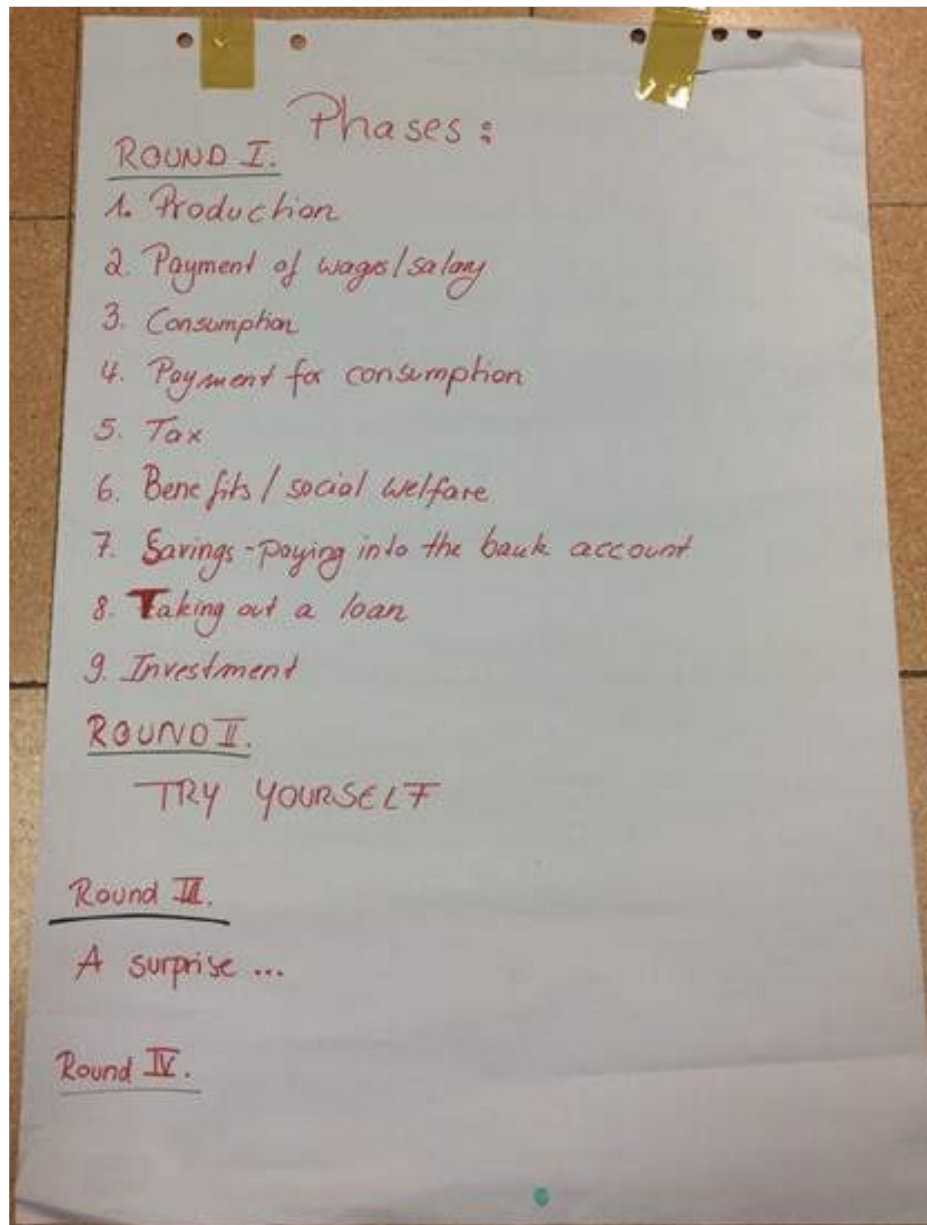 Phases:
ROUND I.
1. Production
2. Payment of wages/salary
3. Consumption
4. Payment for consumption
5. Tax
6. Benefits / social welfare
7. Savings - paying into the bank account
8. Taking out a loan
9. Investment
ROUND II.
TRY YOURSELF
Round III.
A surprise ...
Round IV.